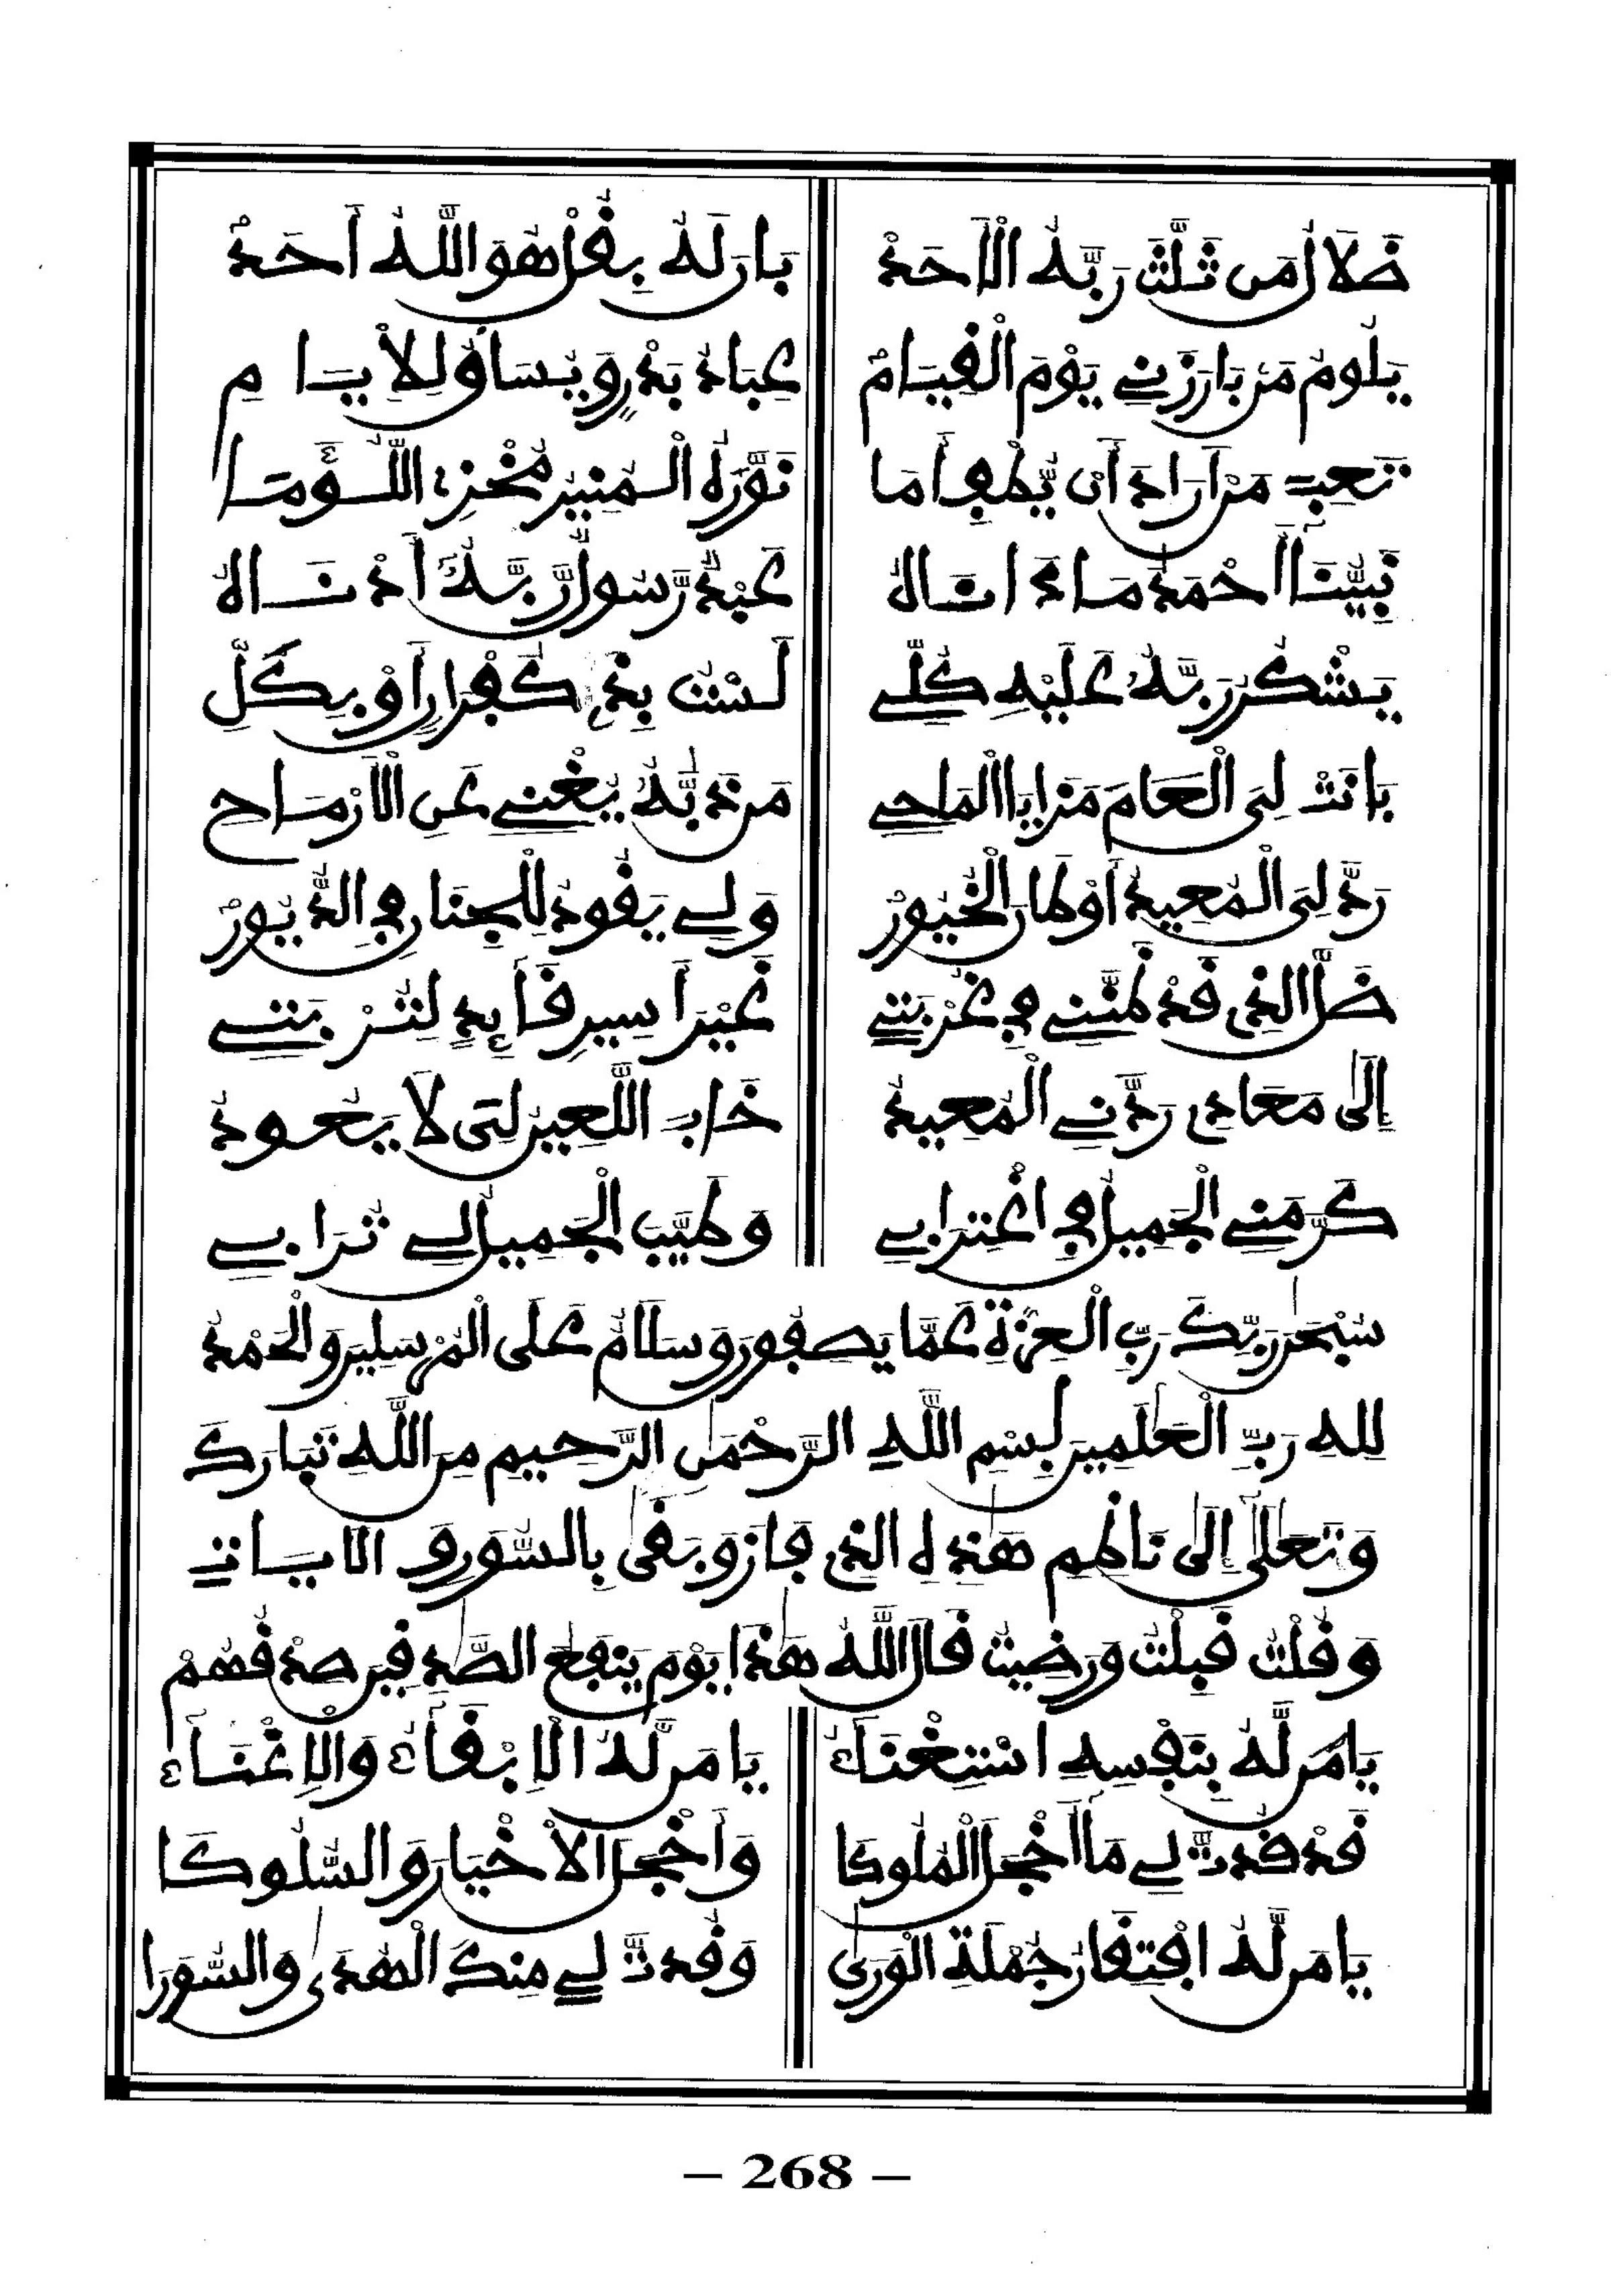 ضَلَالُ مَن ثَلَّثَ رَبُّهُ الْأَحَدْ بَانَ لَهُ بِقُلْ هُوَ اللَّهُ أَحَدْ
يَلُومُ مَن بَارَزَنِي يَوْمَ الْقِيَامْ عِبَادُ بَدْرٍ وَيُسَاقُ لِلْأيَامِ
تَعِبَ مَنْ أَرَادَ أَن يُطْفِأَ مَا نَوَّرَهُ الْمُنِيرُ مُخْزِي اللُّؤَمَا
نَبِيُّنَا أَحْمَدُ مَاءَ انَالَهُ عَبْدٌ رَّسُولٌ رَّبُّهُ أَدْنَالَهُ
يَشْكُرُ رَبَّهُ عَلَيْهِ كُلِّي لَسْتُ بِذِي كُفْرَانٍ أَوْ بِكَلِّ
بَانَتْ لِيَ الْعَامَ مَزَايَا الْمَاحِي مَن ذَبُّهُ يُغْنِي عَنِ الْأَرْمَاحِ
رَدَّ لِيَ الْمُعِيدُ أَوْطَارَ الْخُيُورْ وَلِي يَقُودُ لِلْجِنَانِ فِي الدُّيُورْ
ضَلَّ الذِي قَدْ ظَنَّنِي فِي غُرْبَتِي غَيْرَ أَسِيرٍ قَائِدٍ لِتُرْبَتِي
إِلَى مَعَادِي رَدَّنِي الْمُعِيدُ خَابَ اللَّعِينُ لِيَ لَا يَعُودُ
كَرَّمَنِي الْجَمِيلُ فِي اغْتِرَابِي وَطَيَّبَ الْجَمِيلُ لِي تُرَابِي
سُبْحَٰنَ رَبِّكَ رَبِّ الْعِزَّةِ عَمَّا يَصِفُونَ وَسَلَامٌ عَلَى الْمُرْسَلِينَ وَالْحَمْدُ
لِلهِ رَبِّ الْعَٰلَمِينَ بِسْمِ اللَّهِ الرَّحْمَٰنِ الرَّحِيمِ مِنَ اللَّهِ تَبَارَكَ
وَتَعَٰلَى إِلَى نَاظِمِ هَٰذِهِ الذِي فَازَ وَبَقَى بِالسُّوَرِ وَ الآيَاتِ
وَقُلْتُ قَبِلْتُ وَرَضِيتُ قَالَ اللَّهُ هَٰذَا يَوْمُ يَنفَعُ الصَّٰدِقِينَ صِدْقُهُمْ
يَا مَن لَّهُ بِنَفْسِهِ اسْتِغْنَاءُ يَا مَن لَّهُ الْإِبْقَاءُ وَالْإِغْنَاءُ
قَدْ قُدتَّ لِي مَا أَخْجَلَ الْمُلُوكَا وَأَخْجَلَ الأَخْيَارَ وَالسُّلُوكَا
يَا مَن لَّهُ افْتِقَارُ جُمْلَةِ الْوَرَى وَقُدتَّ لِي مِنكَ الْهُدَى وَالسُّوَرَا
— 268 —